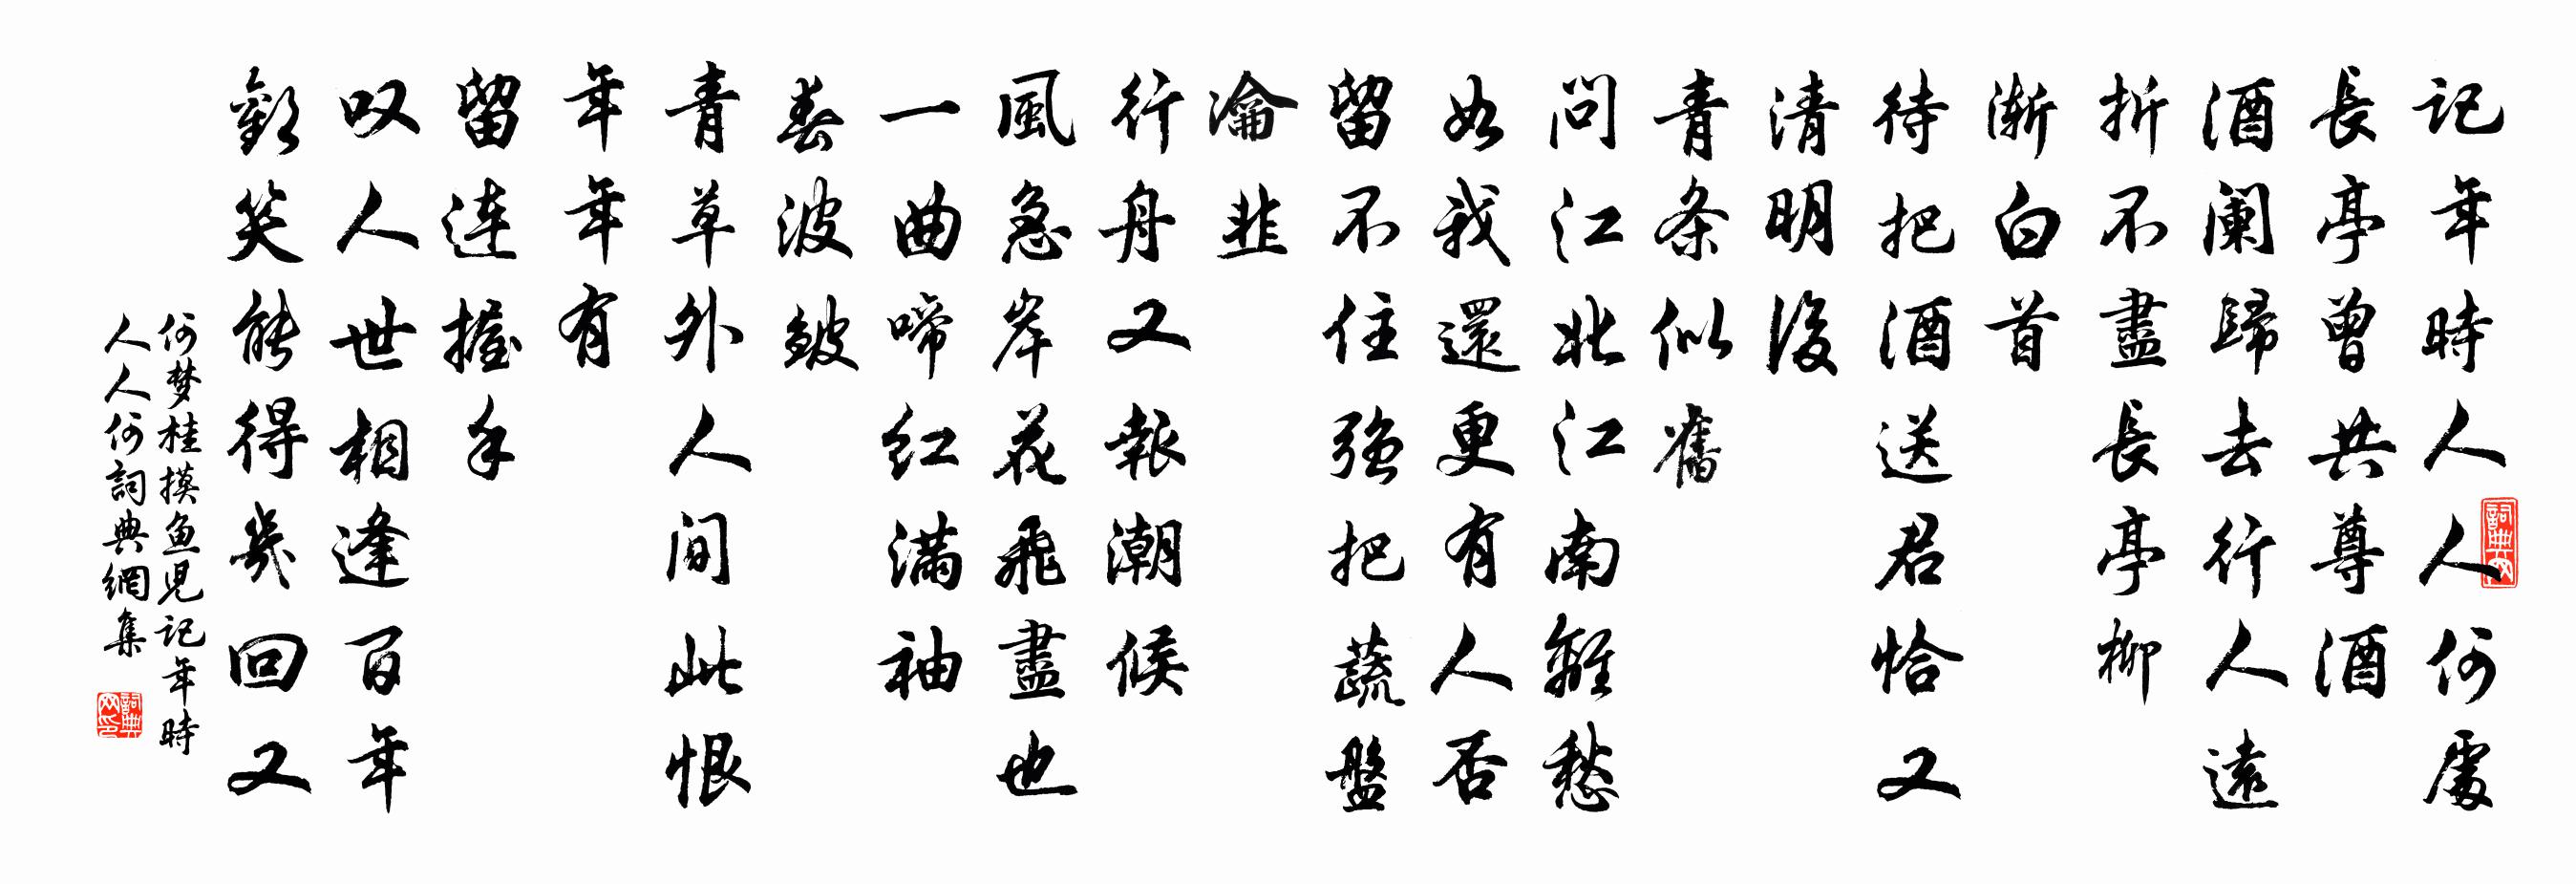 记年時人人何處
長亭曾共尊酒
酒闌歸去行人遠
折不盡長亭柳
渐白首
待把酒送君恰又
清明後
青条似舊
问江北江南離愁
如我還更有人否
留不住强把蔬盤
瀹韭
行舟又報潮候
風急岸花飛盡也
一曲啼红满袖
春波皱
青草外人间此恨
年年有
留连握手
叹人世相逢百年
歡笑能得幾回又
何梦桂摸鱼児记年時
人人何詞典網集
詞典網
詞典網印